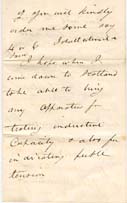 if you will kindly
order me some say
4 or 6
I hope when I
come down to Scotland
to be able to bring
any Apparatus for
testing inductive
Capacity & also for
indicating feeble
tension